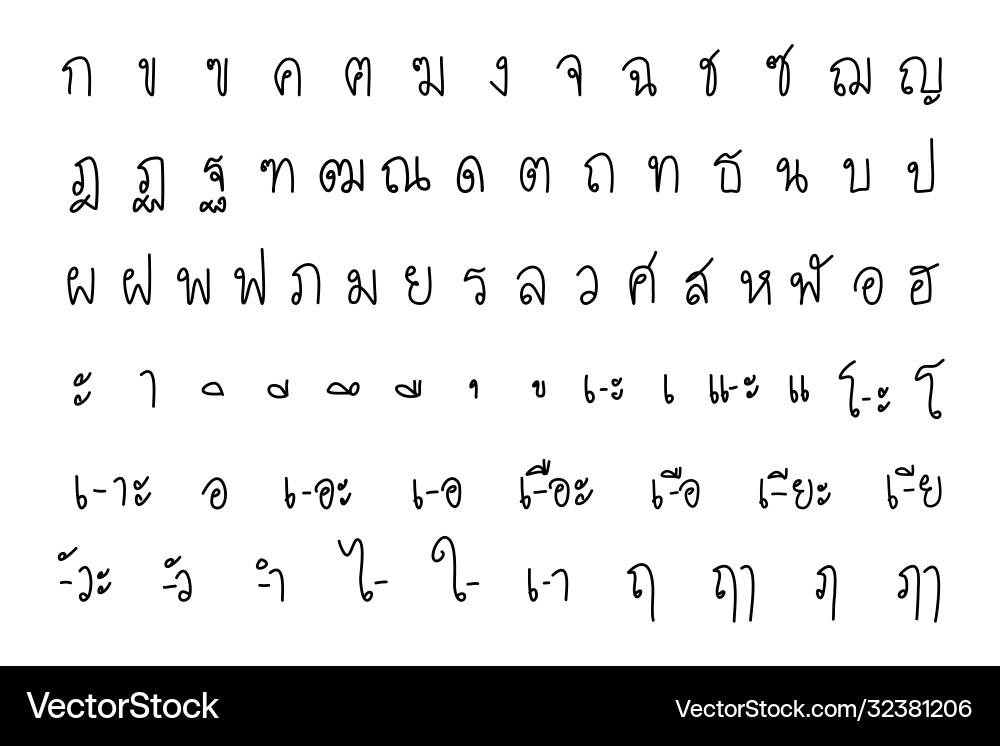 ก ข ฃ ค ฅ ฆ ง จ ฉ ช ซ ฌ ญ
ฎ ฏ ฐ ฑ ฒ ณ ด ต ถ ท ธ น บ ป
ผ ฝ พ ฟ ภ ม ย ร ล ว ศ ส ห ฬ อ ฮ
ะ า ิ ี ึ ื ุ ู เ-ะ เ แ-ะ แ โ-ะ โ
เ-าะ อ เ-อะ เ-อ เ-ือะ เ-ือ เ-ียะ เ-ีย
-ัวะ -ัว -ำ ไ- ใ- เ-า ฤ ฤา ฦ ฦา
VectorStock VectorStock.com/32381206